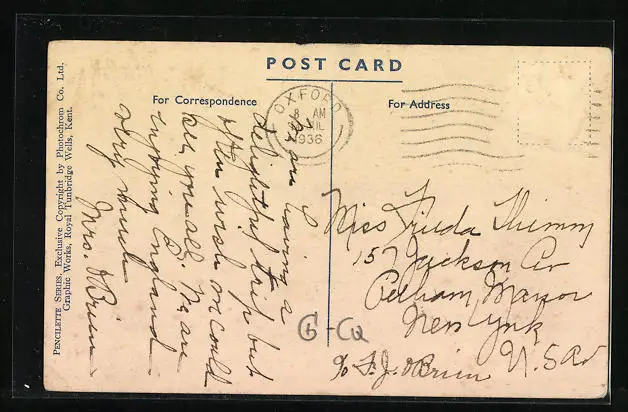 POST CARD
For Correspondence
For Address
OXFORD
8 AM
JUL
1936
We are having a
delightful trip but
often wish we could
see you all. We are
enjoying England
very much
Mrs. O'Brien
Miss Frieda Thimm
157 Jackson Av
Pelham Manor
New York
U.S.A.
c/o F. J. O'Brien
G-CQ
PENCILETTE SERIES, Exclusive Copyright by Photochrom Co. Ltd.
Graphic Works, Royal Tunbridge Wells, Kent.